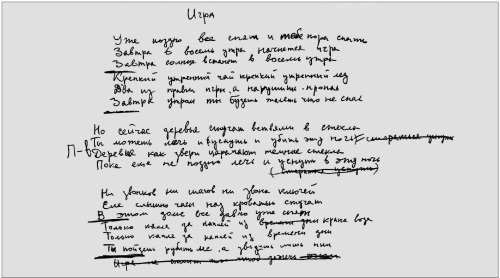 Игра
Уже поздно все спят и тебе пора спать
Завтра в восемь утра начнется игра
Завтра солнце встанет в восемь утра
Крепкий утренний чай крепкий утренний лед
Два из правил игры, а нарушишь - пропал
Завтра утром ты будешь жалеть что не спал
Но сейчас деревья стучат ветвями в стекла
П-в Ты можешь лечь и уснуть и убить эту ночь
Деревья как звери царапают темные стекла
Пока еще не поздно лечь и уснуть в эту ночь
Ни звонков ни шагов ни звона ключей
Еле слышно часы над кроватью стучат
В этом доме все давно уже спят
Только капля за каплей из крана вода
Только капля за каплей из времени дни
Ты пойдешь рубить лес, а увидишь лишь пни